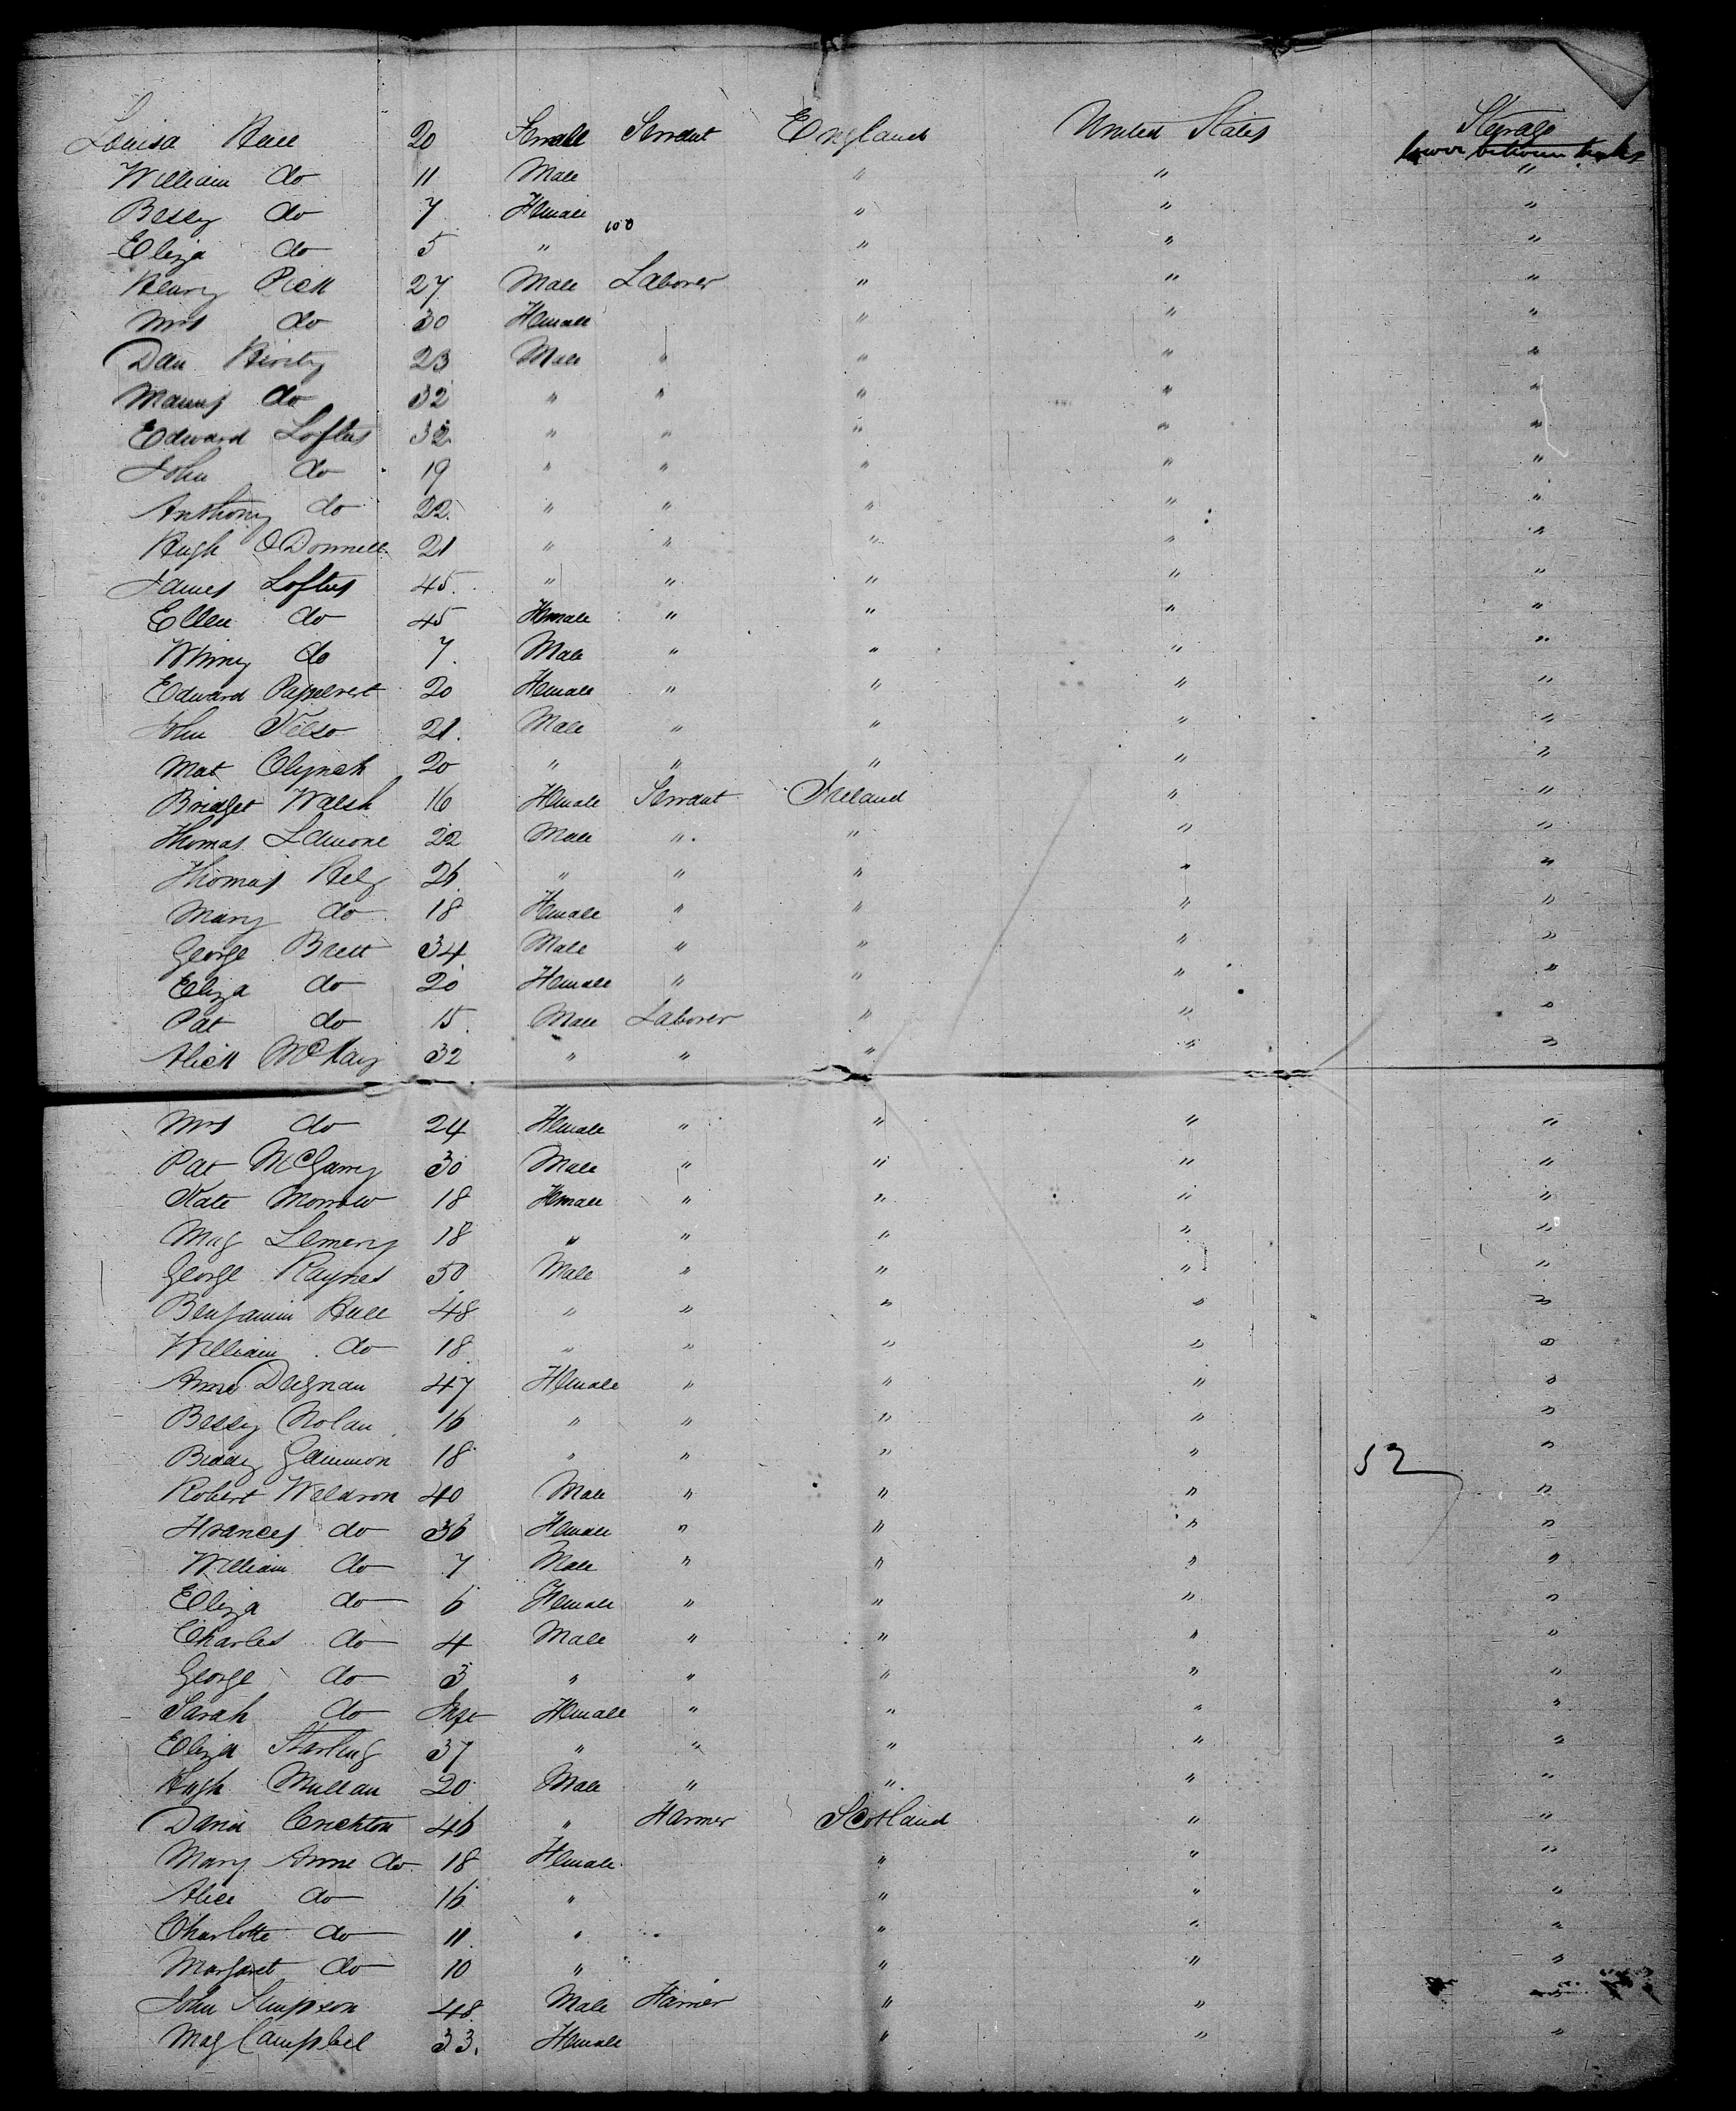 Louisa Hall 20 Female Servant England United States Steerage
lower between decks
William do 11 Male " " "
Bessy do 7 Female " " "
100
Eliza do 5 " " " "
Henry Pick 27 Male Laborer " " "
Mrs do 30 Female " " "
Dan 23 Male " " " "
Manus do 32 " " " " "
Edward Loftus 32 " " " " "
John do 19 " " " " "
Anthony do 22 " " " " "
Hugh O'Donnell 21 " " " " "
James Loftus 45 " " " " "
Ellen do 45 Female " " " "
do 7 Male " " " "
Edward 20 Female " " " "
John Kelso 21 Male " " " "
Mat 20 " " " " "
Bridget Walsh 16 Female Servant Ireland " "
Thomas 22 Male " " " "
Thomas 26 " " " " "
Mary do 18 Female " " " "
George Brett 34 Male " " " "
Eliza do 20 Female " " " "
Pat do 15 Male Laborer " " "
Alick McKay 32 " " " " "
Mrs do 24 Female " " " "
Pat McGarry 30 Male " " " "
Kate Morrow 18 Female " " " "
Mag 18 " " " " "
George Raynes 50 Male " " " "
Benjamin Hall 48 " " " " "
William do 18 " " " " "
Anne Degnan 47 Female " " " "
Bessy Nolan 16 " " " " "
Biddy Gammon 18 " " " " "
52
Robert Waldron 40 Male " " " "
Frances do 36 Female " " " "
William do 7 Male " " " "
Eliza do 6 Female " " " "
Charles do 4 Male " " " "
George do 3 " " " " "
Sarah do Inft Female " " " "
Eliza Starling 37 " " " " "
Hugh Mullan 20 Male " " " "
David Crichton 46 " Farmer Scotland " "
Mary Anne do 18 Female " " "
Alice do 16 " " " "
Charlotte do 11 " " " "
Margaret do 10 " " " "
John Simpson 48 Male Farmer " " "
Mag Campbel 33 Female " " "